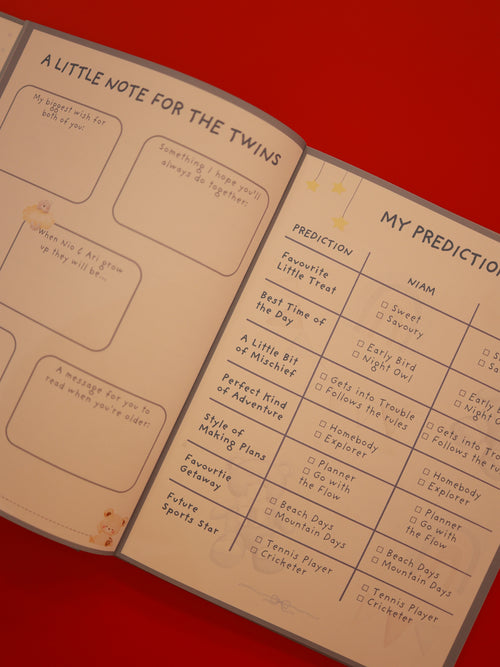 A LITTLE NOTE FOR THE TWINS
My biggest wish for
both of you:
Something I hope you'll
always do together:
When Nio & Ari grow
up they will be...
A message for you to
read when you're older:
MY PREDICTIO
PREDICTION
NIAM
Favourite
Little Treat
☐ Sweet
☐ Savoury
☐ S
☐ Sa
Best Time of
the Day
☐ Early Bird
☐ Night Owl
☐ Early
☐ Night O
A Little Bit
of Mischief
☐ Gets into Trouble
☐ Follows the rules
☐ Gets into Tro
☐ Follows the r
Perfect Kind
of Adventure
☐ Homebody
☐ Explorer
☐ Homebody
☐ Explorer
Style of
Making Plans
☐ Planner
☐ Go with
the Flow
☐ Planner
☐ Go with
the Flow
Favourtie
Getaway
☐ Beach Days
☐ Mountain Days
☐ Beach Days
☐ Mountain Days
Future
Sports Star
☐ Tennis Player
☐ Cricketer
☐ Tennis Player
☐ Cricketer